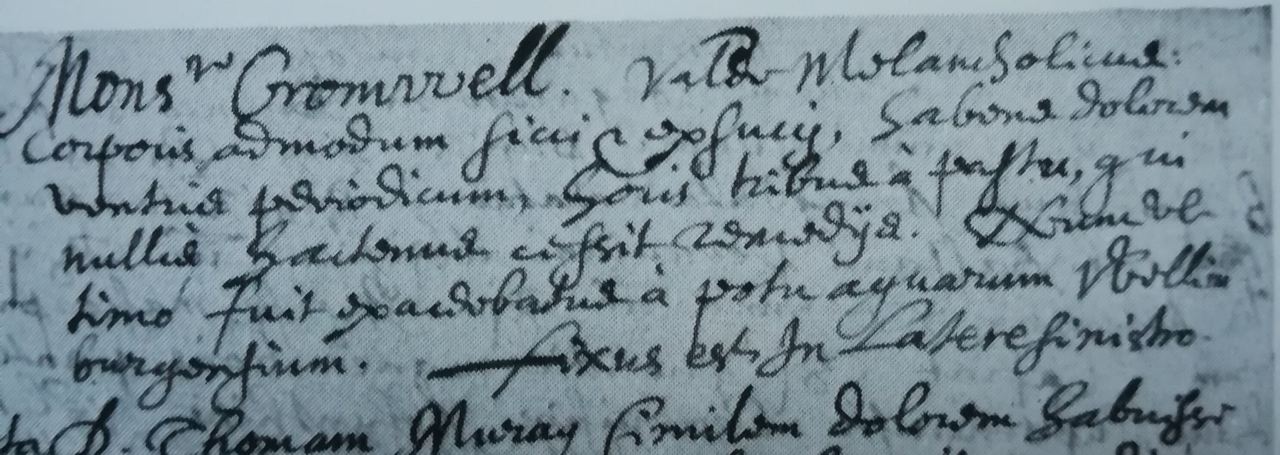 Monsr Cromwell. Valde Melancholicus:
Corporis admodum sicci & exsucci, habens dolorem
ventris periodicum, horis tribus à pastu, qui
nullis hactenus cessit remedijs. ul-
timo fuit exacerbatus à potu aquarum Wellin-
burgensium. — fixus est In Latere sinistro.
D. Thomam Muray similem dolorem habuisse